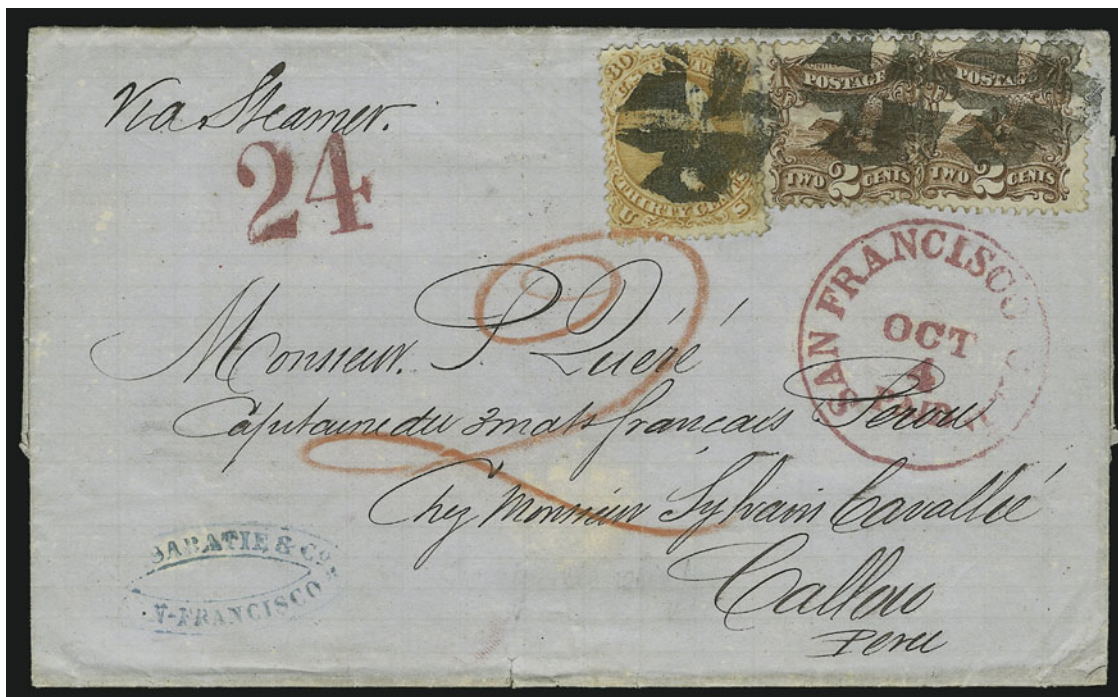 Via Steamer.
24
30
THIRTY CENTS
U S
POSTAGE
TWO 2 CENTS
POSTAGE
TWO 2 CENTS
SAN FRANCISCO
OCT
4
PAID
2
Monsieur. P. Quéré
Capitaine du 3 mats français Perou
Chez Monsieur Sylvain Cavallié
Callao
Peru
SABATIE & Co
FRANCISCO